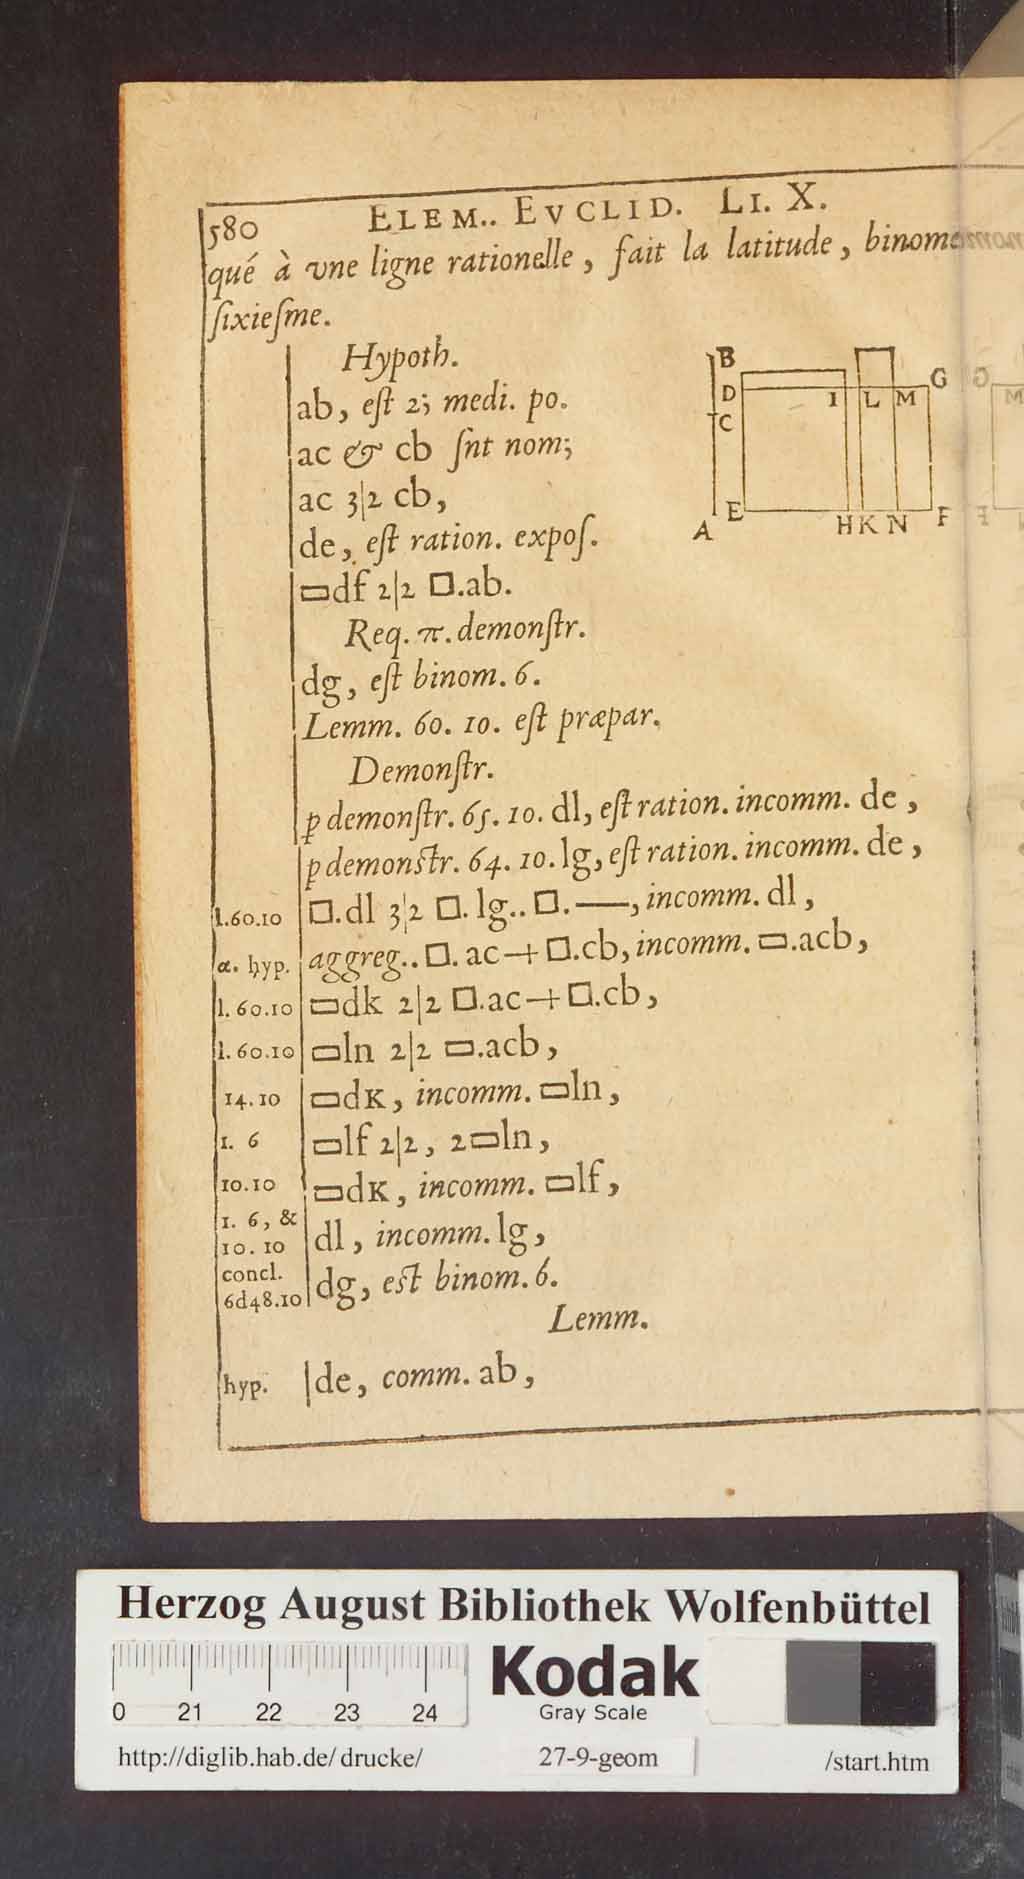 580 ELEM.. EVCLID. LI. X.
qué à vne ligne rationelle, fait la latitude, binome
ſixieſme.
Hypoth.
ab, eſt 2; medi. po.
ac & cb ſnt nom;
ac 3|2 cb,
de, eſt ration. expoſ.
▭df 2|2 □.ab.
Req. π. demonſtr.
dg, eſt binom. 6.
Lemm. 60. 10. eſt præpar.
Demonſtr.
ꝑ demonſtr. 65. 10. dl, eſt ration. incomm. de,
ꝑ demonſtr. 64. 10. lg, eſt ration. incomm. de,
l.60.10 □.dl 3|2 □.lg.. □.——, incomm. dl,
α. hyp. aggreg.. □.ac + □.cb, incomm. ▭.acb,
l. 60.10 ▭dk 2|2 □.ac + □.cb,
l. 60.10 ▭ln 2|2 ▭.acb,
14.10 ▭dK, incomm. ▭ln,
1. 6 ▭lf 2|2, 2▭ln,
10.10 ▭dK, incomm. ▭lf,
1. 6, &
10. 10 dl, incomm. lg,
concl.
6d48.10 dg, eſt binom. 6.
Lemm.
hyp. de, comm. ab,
B
D
C
A
E
I L M
G
H K N F
Herzog August Bibliothek Wolfenbüttel
0 21 22 23 24
Kodak
Gray Scale
http://diglib.hab.de/drucke/ 27-9-geom /start.htm